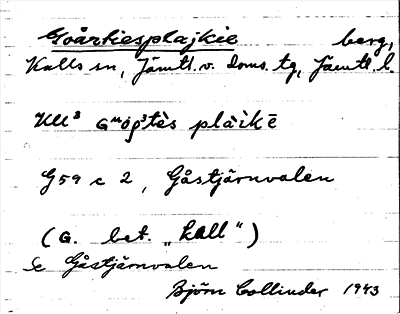 Goårtiesplajkie berg,
Kalls sn, Jämtl. v. doms. tg, Jämtl. l.
plàikē
G59 c 2, Gåstjärnvalen
(G. bet. „kall“)
Se Gåstjärnvalen
Björn Collinder 1943